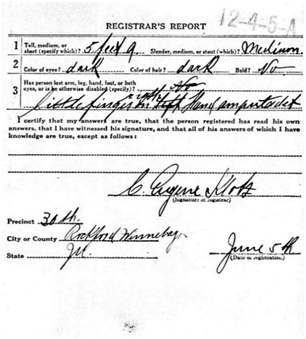 REGISTRAR'S REPORT
12-4-5-A
1 Tall, medium, or short (specify which)? 5 feet 9 Slender, medium, or stout (which)? Medium
2 Color of eyes? dark Color of hair? dark Bald? No
3 Has person lost arm, leg, hand, foot, or both eyes, or is he otherwise disabled (specify)? No
Little finger on right Hand amputated
I certify that my answers are true, that the person registered has read his own
answers, that I have witnessed his signature, and that all of his answers of which I
have knowledge are true, except as follows:
C. Eugene Klots
(Signature of registrar)
Precinct 30th
City or County Rockford Winnebago
State Ill June 5th
(Date of registration)